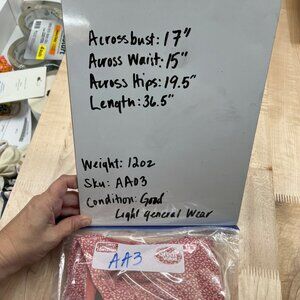 Across bust: 17"
Across Waist: 15"
Across Hips: 19.5"
Length: 36.5"
Weight: 12oz
Sku: AA03
Condition: Good
Light general Wear
AA3